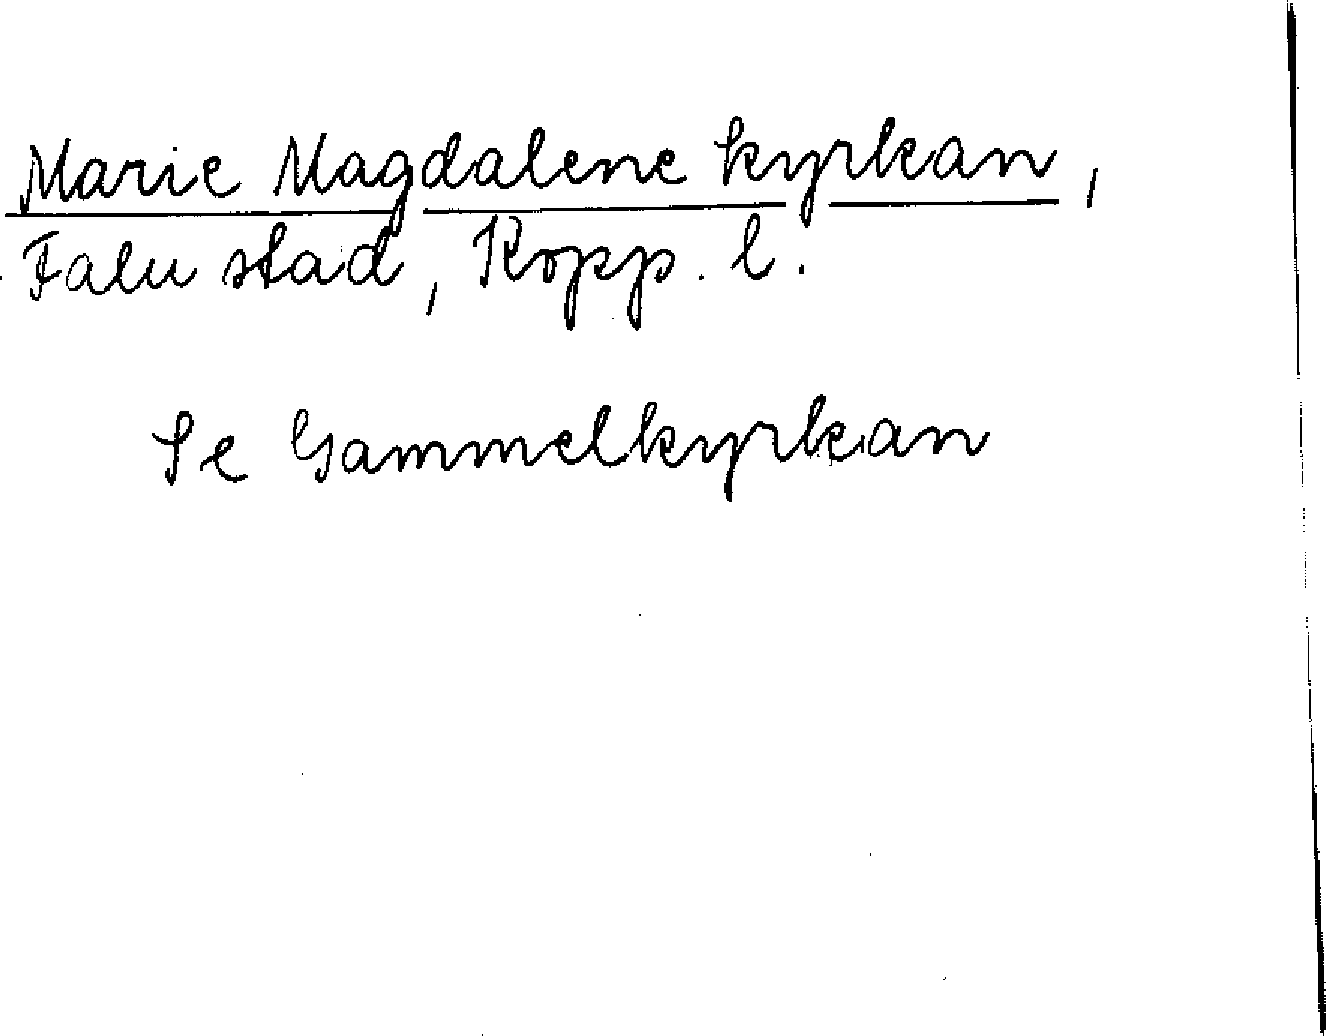 Marie Magdalene kyrkan,
Falu stad, Kopp. l.
Se Gammelkyrkan